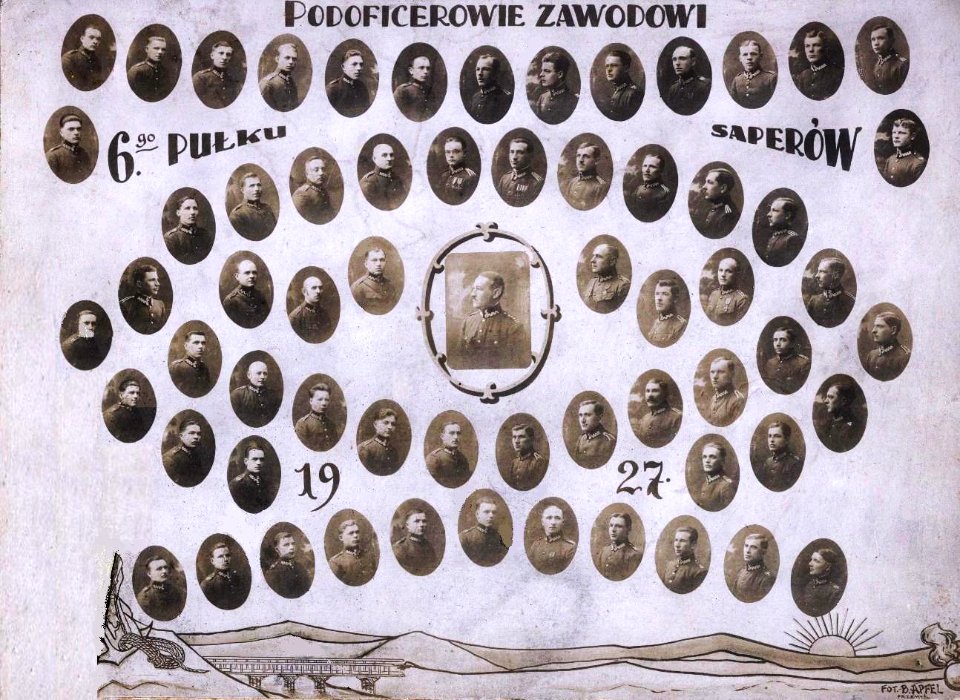 PODOFICEROWIE ZAWODOWI
6.go PUŁKU SAPERÓW
19 27.
FOT. B. APFEL